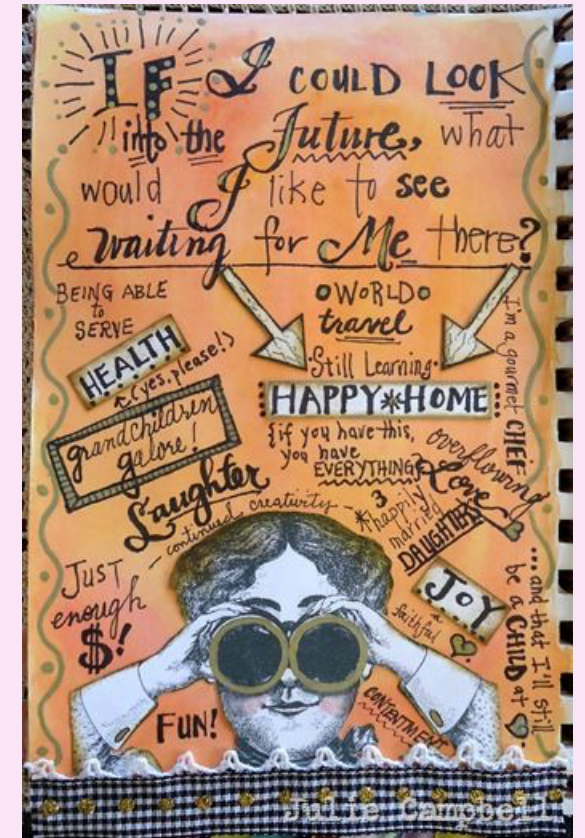 IF I COULD LOOK
into the Future, what
would I like to see
waiting for Me there?
BEING ABLE
to
SERVE
HEALTH
(yes, please!)
grandchildren
galore!
Laughter
- continued creativity -
JUST
enough
$!
FUN!
WORLD
travel
·Still Learning·
HAPPY*HOME
{if you have this,
you have
EVERYTHING}
overflowing
Love
*3
happily
married
DAUGHTERS
JOY
a
faithful
CONTENTMENT
I'm a gourmet CHEF
...and that I'll still
be a CHILD at
Julie Campbell